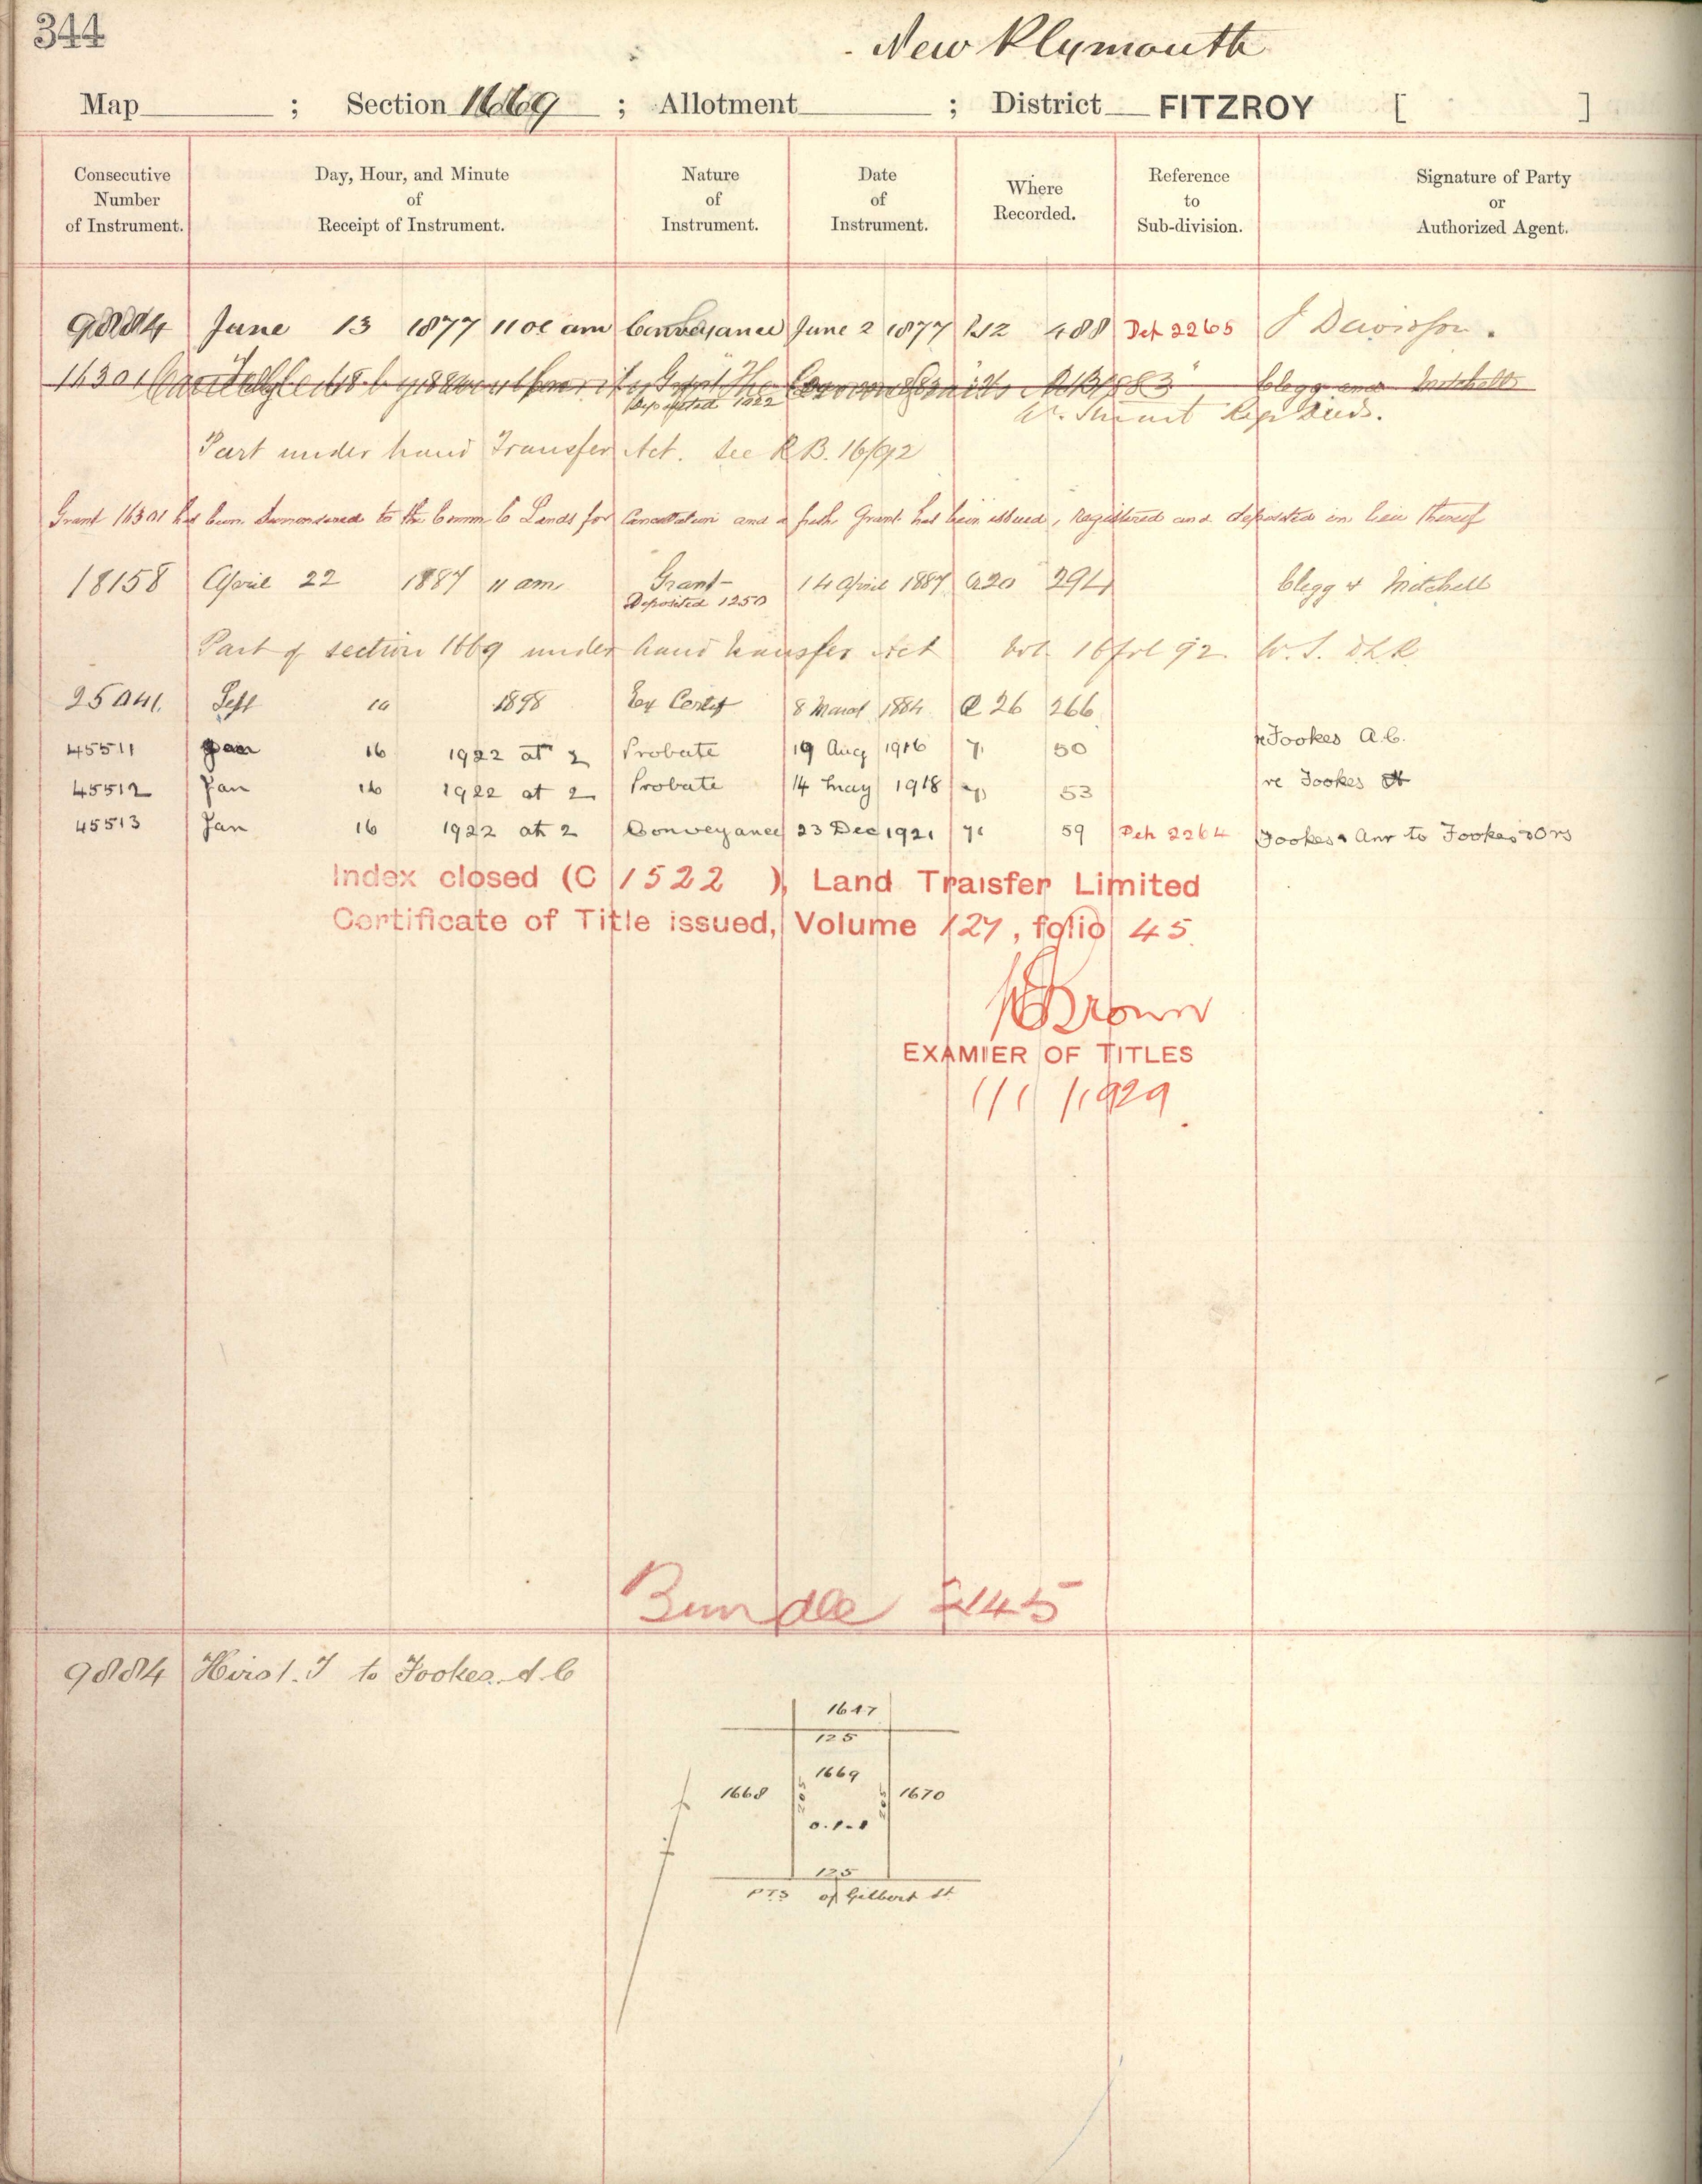 344
New Plymouth
Map ; Section 1669 ; Allotment ; District FITZROY [ ]
Consecutive Number of Instrument. Day, Hour, and Minute of Receipt of Instrument. Nature of Instrument. Date of Instrument. Where Recorded. Reference to Sub-division. Signature of Party or Authorized Agent.
9884 June 13 1877 11 am Conveyance June 2 1877 488 2265 J Davidson.
16301 Clegg and Mitchell
Deposited 1922 Deeds.
Part under Land Transfer Act. See R.B. 16/92
Grant 16301 has been surrendered to the Lands for Cancellation and a fresh Grant has been issued, registered and deposited in lieu thereof
18158 April 22 1887 11 am Grant 14 April 1887 294 Clegg & Mitchell
Deposited 1250
Part of section 1669 under Land Transfer Act Vol 16 fol 92. W.S. DLR
Sept 1898 Ex Certif 8 March 1884 26 266
45511 Jan 16 1922 at 2 Probate 19 Aug 1916 50 re Fookes A.C.
45512 Jan 16 1922 at 2 Probate 14 May 1918 53 re Fookes
45513 Jan 16 1922 at 2 Conveyance 23 Dec 1921 59 2264 Fookes & Anr to Fookes & Ors
Index closed (C 1522 ), Land Traısfer Limited
Certificate of Title issued, Volume 127, folio 45.
Brown
EXAMIER OF TITLES
1/1/1929
Bundle 2145
9884 Hirst. T to Fookes. A. C
1647
125
1669
1668 205 205 1670
0.1.
125
of Gilbert St